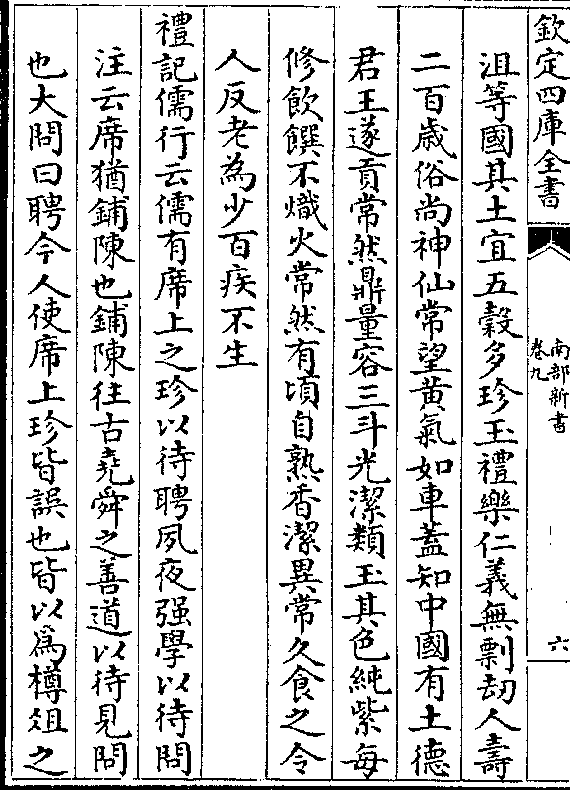 欽定四庫全書
南部新書
卷九
六
沮等國其土宜五穀多珍玉禮樂仁義無剽刼人壽
二百歳俗尚神仙常望黄氣如車蓋知中國有土德
君王遂貢常然鼎量容三斗光潔類玉其色純紫每
修飲饌不熾火常然有頃自熟香潔異常久食之令
人反老為少百疾不生
禮記儒行云儒有席上之珍以待聘夙夜强學以待問
注云席猶鋪陳也鋪陳往古堯舜之善道以待見問
也大問曰聘今人使席上珍皆誤也皆以為樽俎之